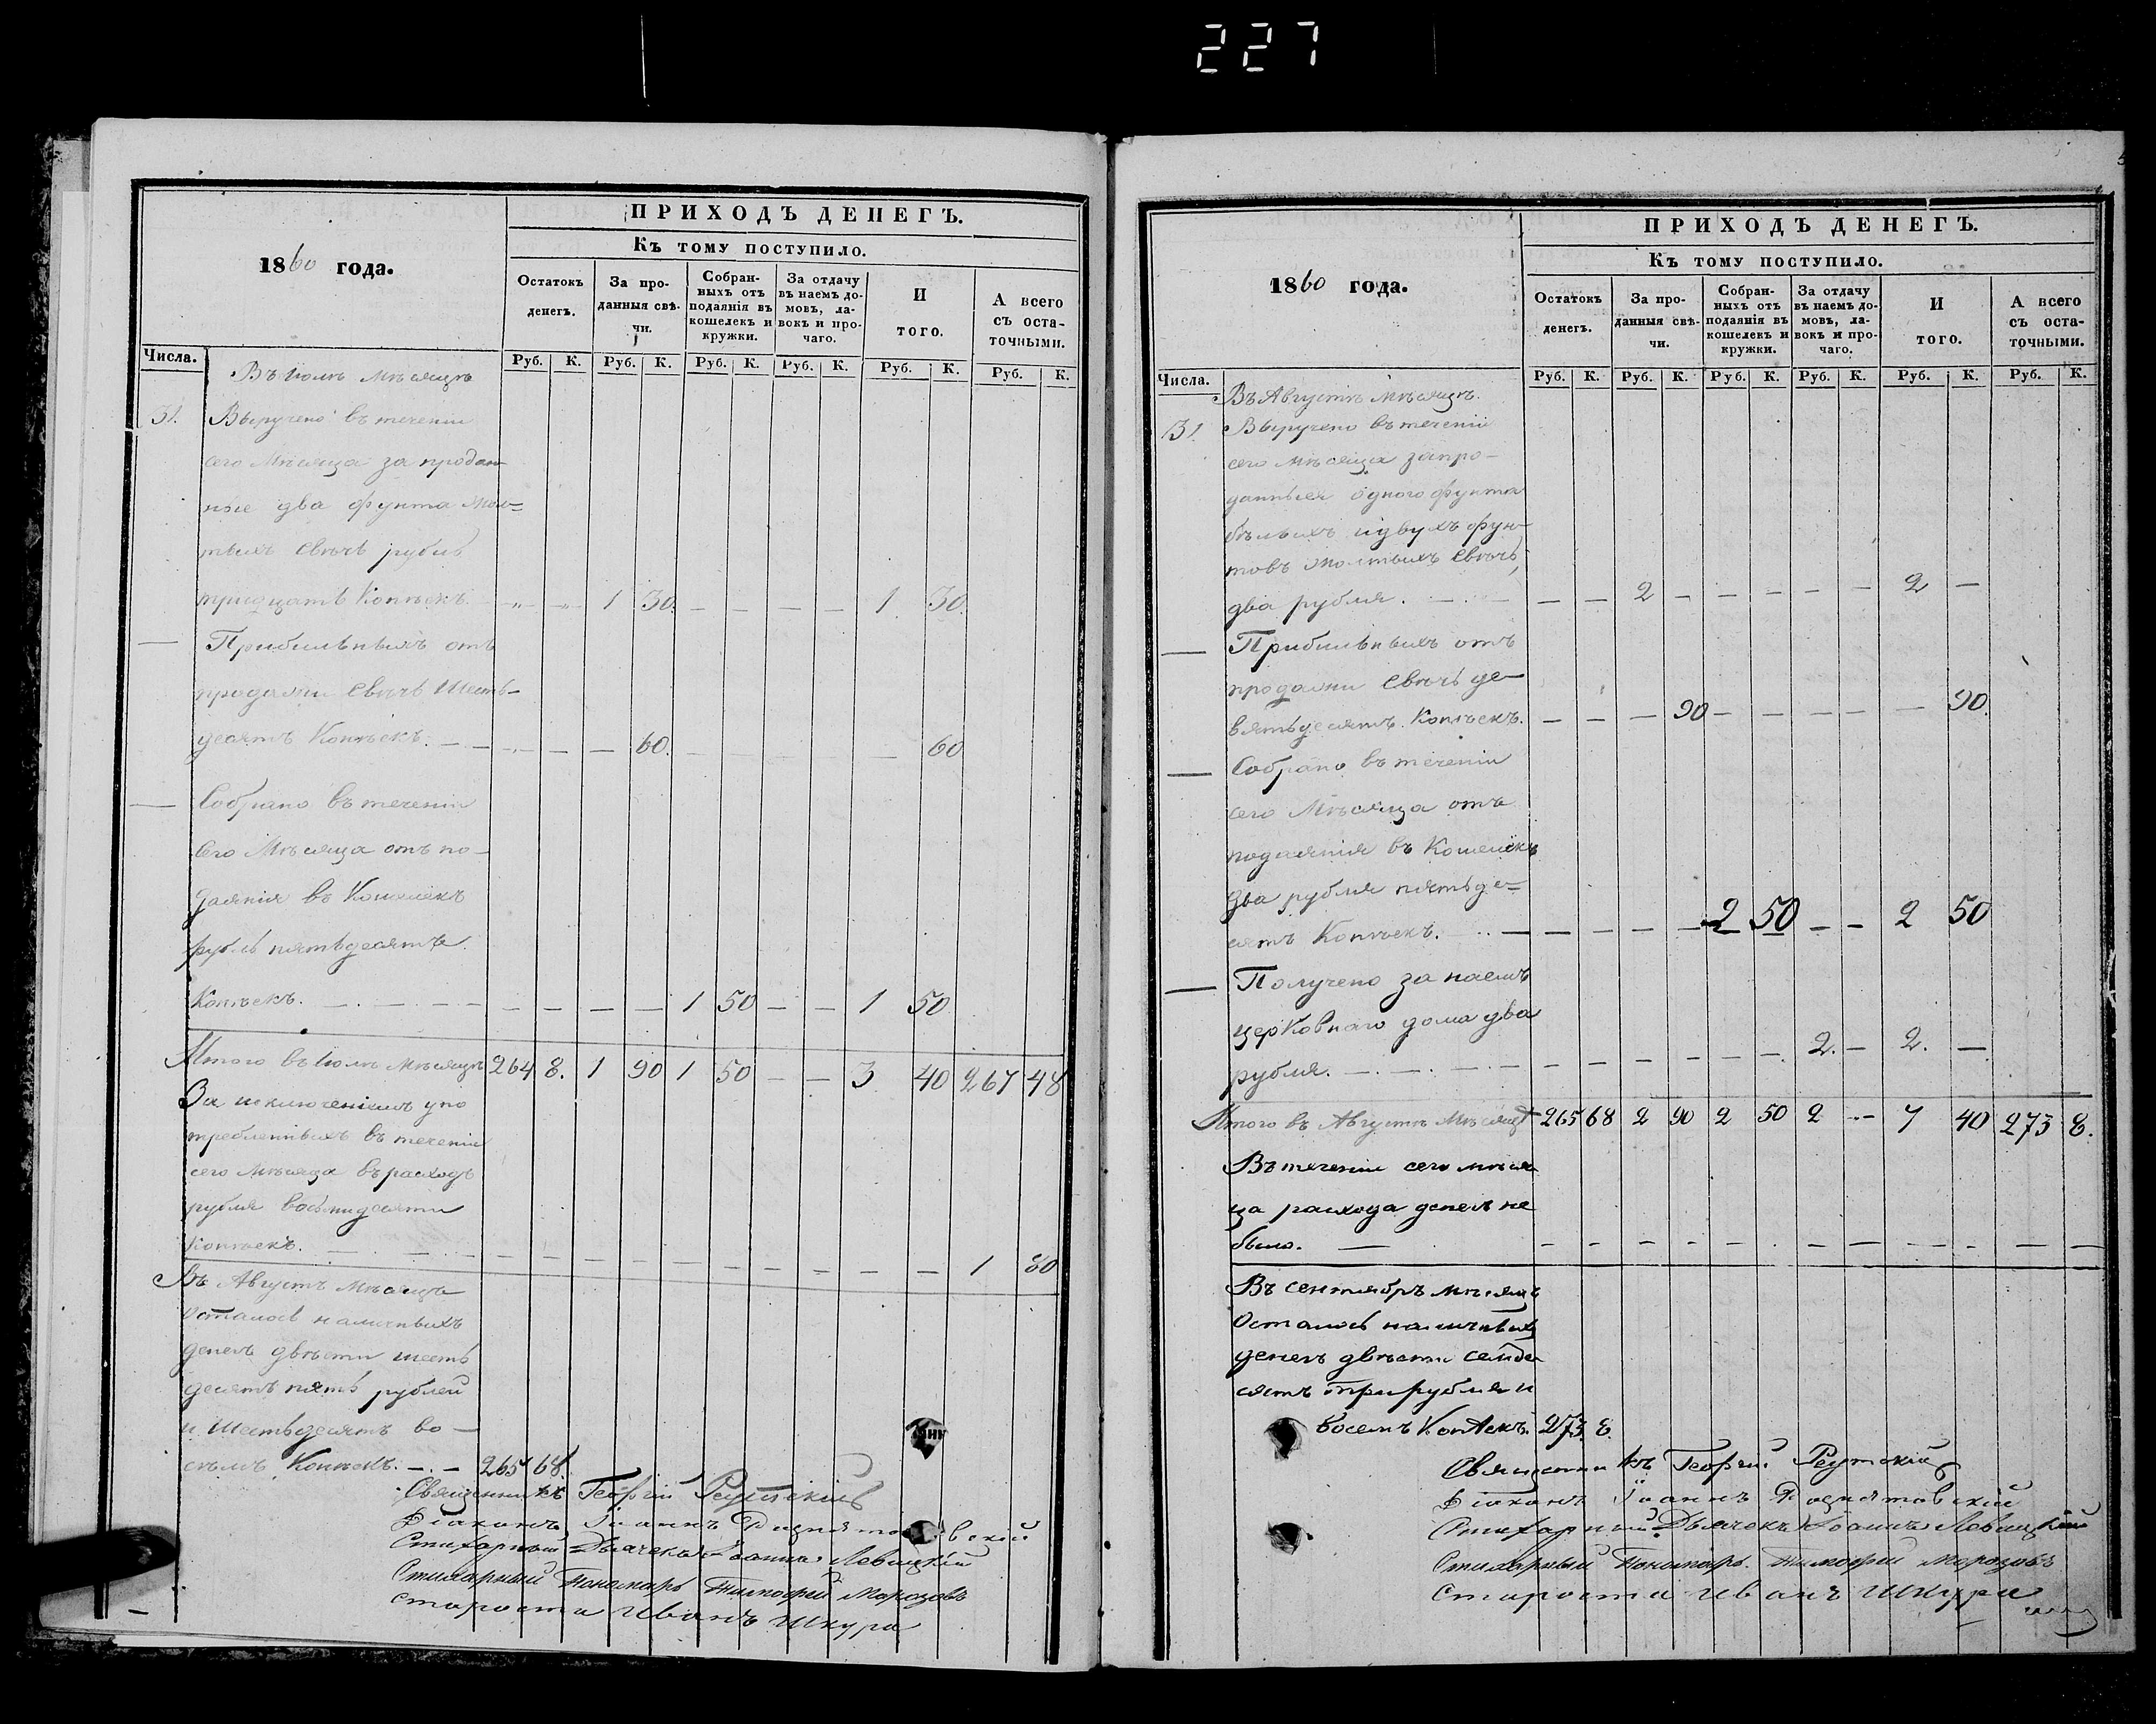 227
ПРИХОДЪ ДЕНЕГЪ.
1860 года.
Къ тому поступило.
Остатокъ денегъ.
За проданныя свѣчи.
Собранныхъ отъ подаянія въ кошелекъ и кружки.
За отдачу въ наемъ домовъ, лавокъ и прочаго.
И того.
А всего съ остаточными.
Числа.
Руб. К. Руб. К. Руб. К. Руб. К. Руб. К. Руб. К.
Въ Іюлѣ мѣсяцѣ
31. Выручено въ теченіи
сего Мѣсяца за продан-
ные два фунта жол-
тыхъ свѣчъ рубль
тридцать Копѣекъ. 1 30. 1 30.
Прибыльныхъ отъ
продажи Свѣчъ шесть-
десятъ Копѣекъ. 60. 60
Собрано въ теченіи
Сего Мѣсяца отъ по-
даянія въ Кошелекъ
рубль пятьдесятъ
Копѣекъ. 1 50 1 50
Итого въ Іюлѣ Мѣсяцѣ 264 8. 1 90 1 50 — — 3 40 267 48
За исключеніемъ упо
требленныхъ въ теченіи
сего мѣсяца въ расходъ
рубля восьмидесяти
копѣекъ. 1 80
Въ Августъ Мѣсяцъ
Осталось наличныхъ
денегъ двѣсти шесть
десятъ пять рублей
и шестьдесятъ во-
сѣмъ Копѣекъ. 265 68.
Священникъ Георгій Реутскій
Діаконъ Іоаннъ
Стихарный Дьячекъ Іоаннъ Левицкій
Стихарный Пономарь Тимофей Морозовъ
староста Иванъ Шкура
ПРИХОДЪ ДЕНЕГЪ.
1860 года.
Къ тому поступило.
Остатокъ денегъ.
За проданныя свѣчи.
Собранныхъ отъ подаянія въ кошелекъ и кружки.
За отдачу въ наемъ домовъ, лавокъ и прочаго.
И того.
А всего съ остаточными.
Числа.
Руб. К. Руб. К. Руб. К. Руб. К. Руб. К. Руб. К.
Въ Августѣ мѣсяцѣ.
31. Выручено въ теченіи
сего мѣсяца за про-
данныя одного фунта
бѣлыхъ и двухъ фун-
товъ жолтыхъ свѣчъ,
два рубля. 2 — 2 —
Прибыльныхъ отъ
продажи Свѣчъ де-
вятьдесятъ Копѣекъ. 90 90.
Собрано въ теченіи
сего Мѣсяца отъ
подаянія въ Кошелекъ
два рубля пятьде-
сятъ Копѣекъ. 2 50 2 50
Получено за наемъ
церковнаго дома два
рубля. 2. — 2. —
Итого въ Августѣ Мѣсяцѣ 265 68 2 90 2 50 2 — 7 40 273 8.
Въ теченіи сего мѣся
ца расхода денегъ не
было.
Въ сентябрѣ мѣсяцѣ
Осталось наличныхъ
денегъ двѣсти семьде
сятъ три рубля и
восемь Копѣекъ. 273. 8.
Священникъ Георгій Реутскій
Діаконъ Іоаннъ
Стихарный Дьячекъ Іоаннъ Левицкій
Стихарный Пономарь Тимофей Морозовъ
Староста Иванъ Шкура